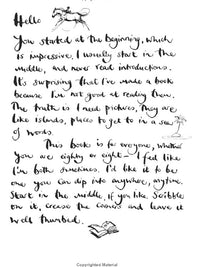 Hello
You started at the beginning, which
is impressive. I usually start in the
middle, and never read introductions.
It's surprising that I've made a book
because I'm not good at reading them.
The truth is I need pictures, they are
like islands, places to get to in a sea
of words.
This book is for everyone, whether
you are eighty or eight - I feel like
I'm both sometimes. I'd like it to be
one you can dip into anywhere, anytime.
Start in the middle, if you like. Scribble
on it, crease the corners and leave it
well thumbed.